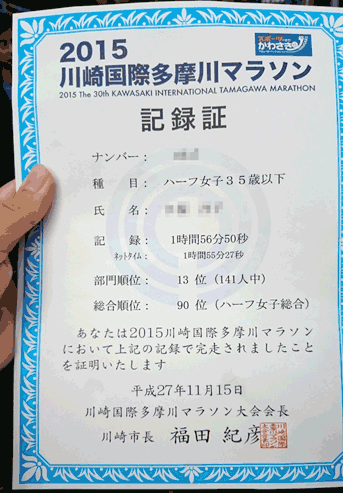 2015
スポーツのまち
かわさき
川崎国際多摩川マラソン
2015 The 30th KAWASAKI INTERNATIONAL TAMAGAWA MARATHON
記録証
ナンバー：
種　目： ハーフ女子３５歳以下
氏　名：
記　録： 1時間56分50秒
ネットタイム： 1時間55分27秒
部門順位： 13 位（141人中）
総合順位： 90 位（ハーフ女子総合）
あなたは2015川崎国際多摩川マラソン
において上記の記録で完走されましたこと
を証明いたします
平成27年11月15日
川崎国際多摩川マラソン大会会長
川崎市長　福田 紀彦